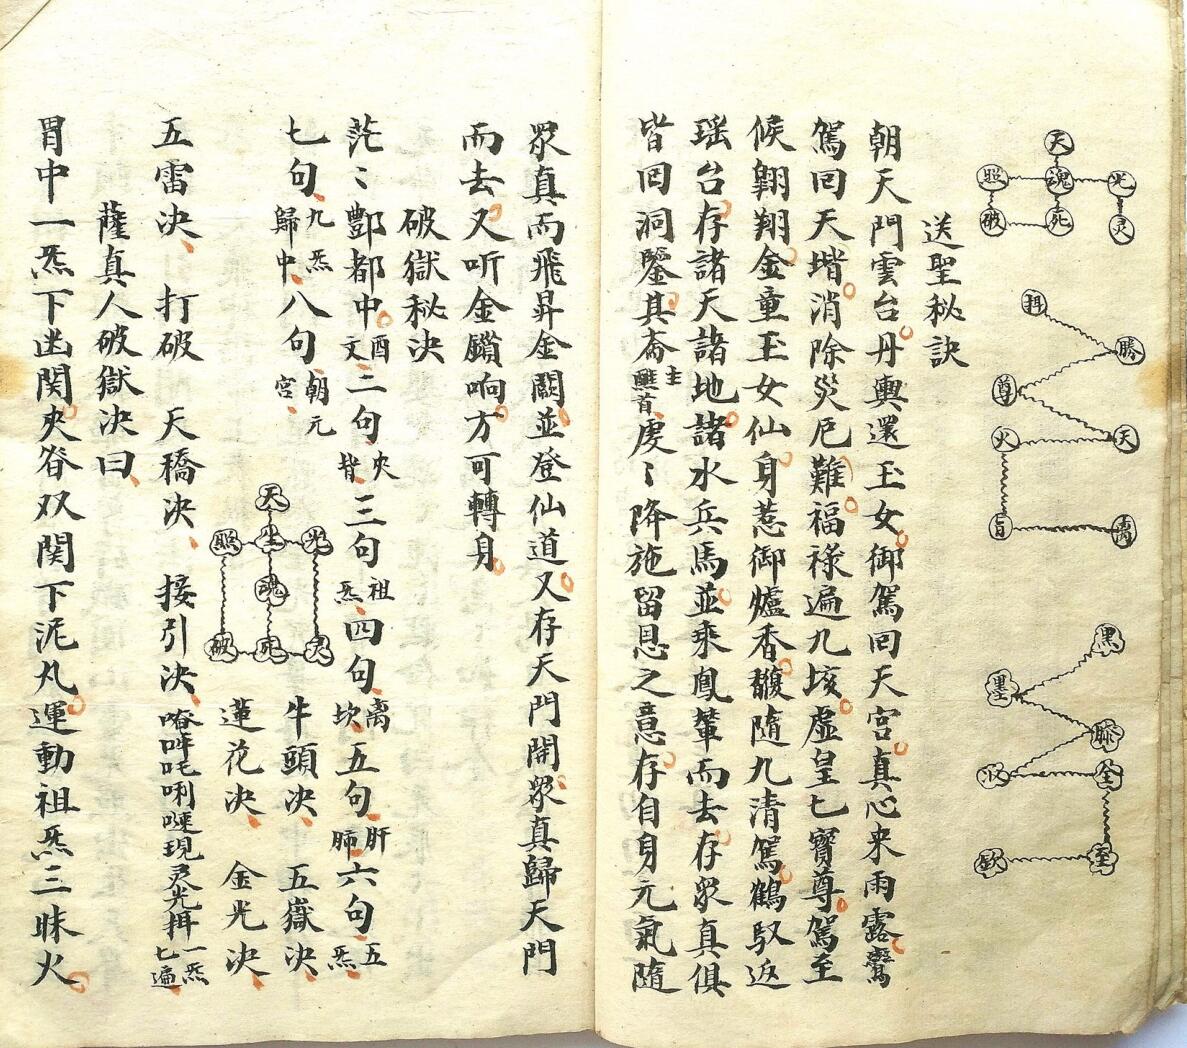 天
照魂光
破死灵
拜
勝
尊
火天
旨离
黑
墨
勝
汲全
歆至
送聖秘訣
朝天門雲台丹輿還玉女御駕回天宮真心来雨露鸞
駕回天堦消除災厄難福禄遍九垓虛皇七寶尊駕至
候翺翔金童玉女仙身惹御爐香馥隨九清駕鶴馭返
瑶台存諸天諸地諸水兵馬並乘鳳輦而去存眾真俱
皆回洞鑒其斋主醮首虔〻降施留恩之意存自身元氣隨
眾真而飛昇金闕並登仙道又存天門開眾真歸天門
而去又听金鎖响方可轉身
破獄秘决
茫〻酆都中酉文二句夾脊三句祖炁四句离坎五句肝肺六句五炁
七句九炁歸中八句朝元宮
牛頭决五嶽决
天
照生光
魂
破死灵
蓮花决金光决
五雷决打破天橋决接引决唵吽吒唎㖶現灵光拜一炁七遍
薩真人破獄决曰
胃中一炁下幽関夾脊双関下泥丸運動祖炁三昧火